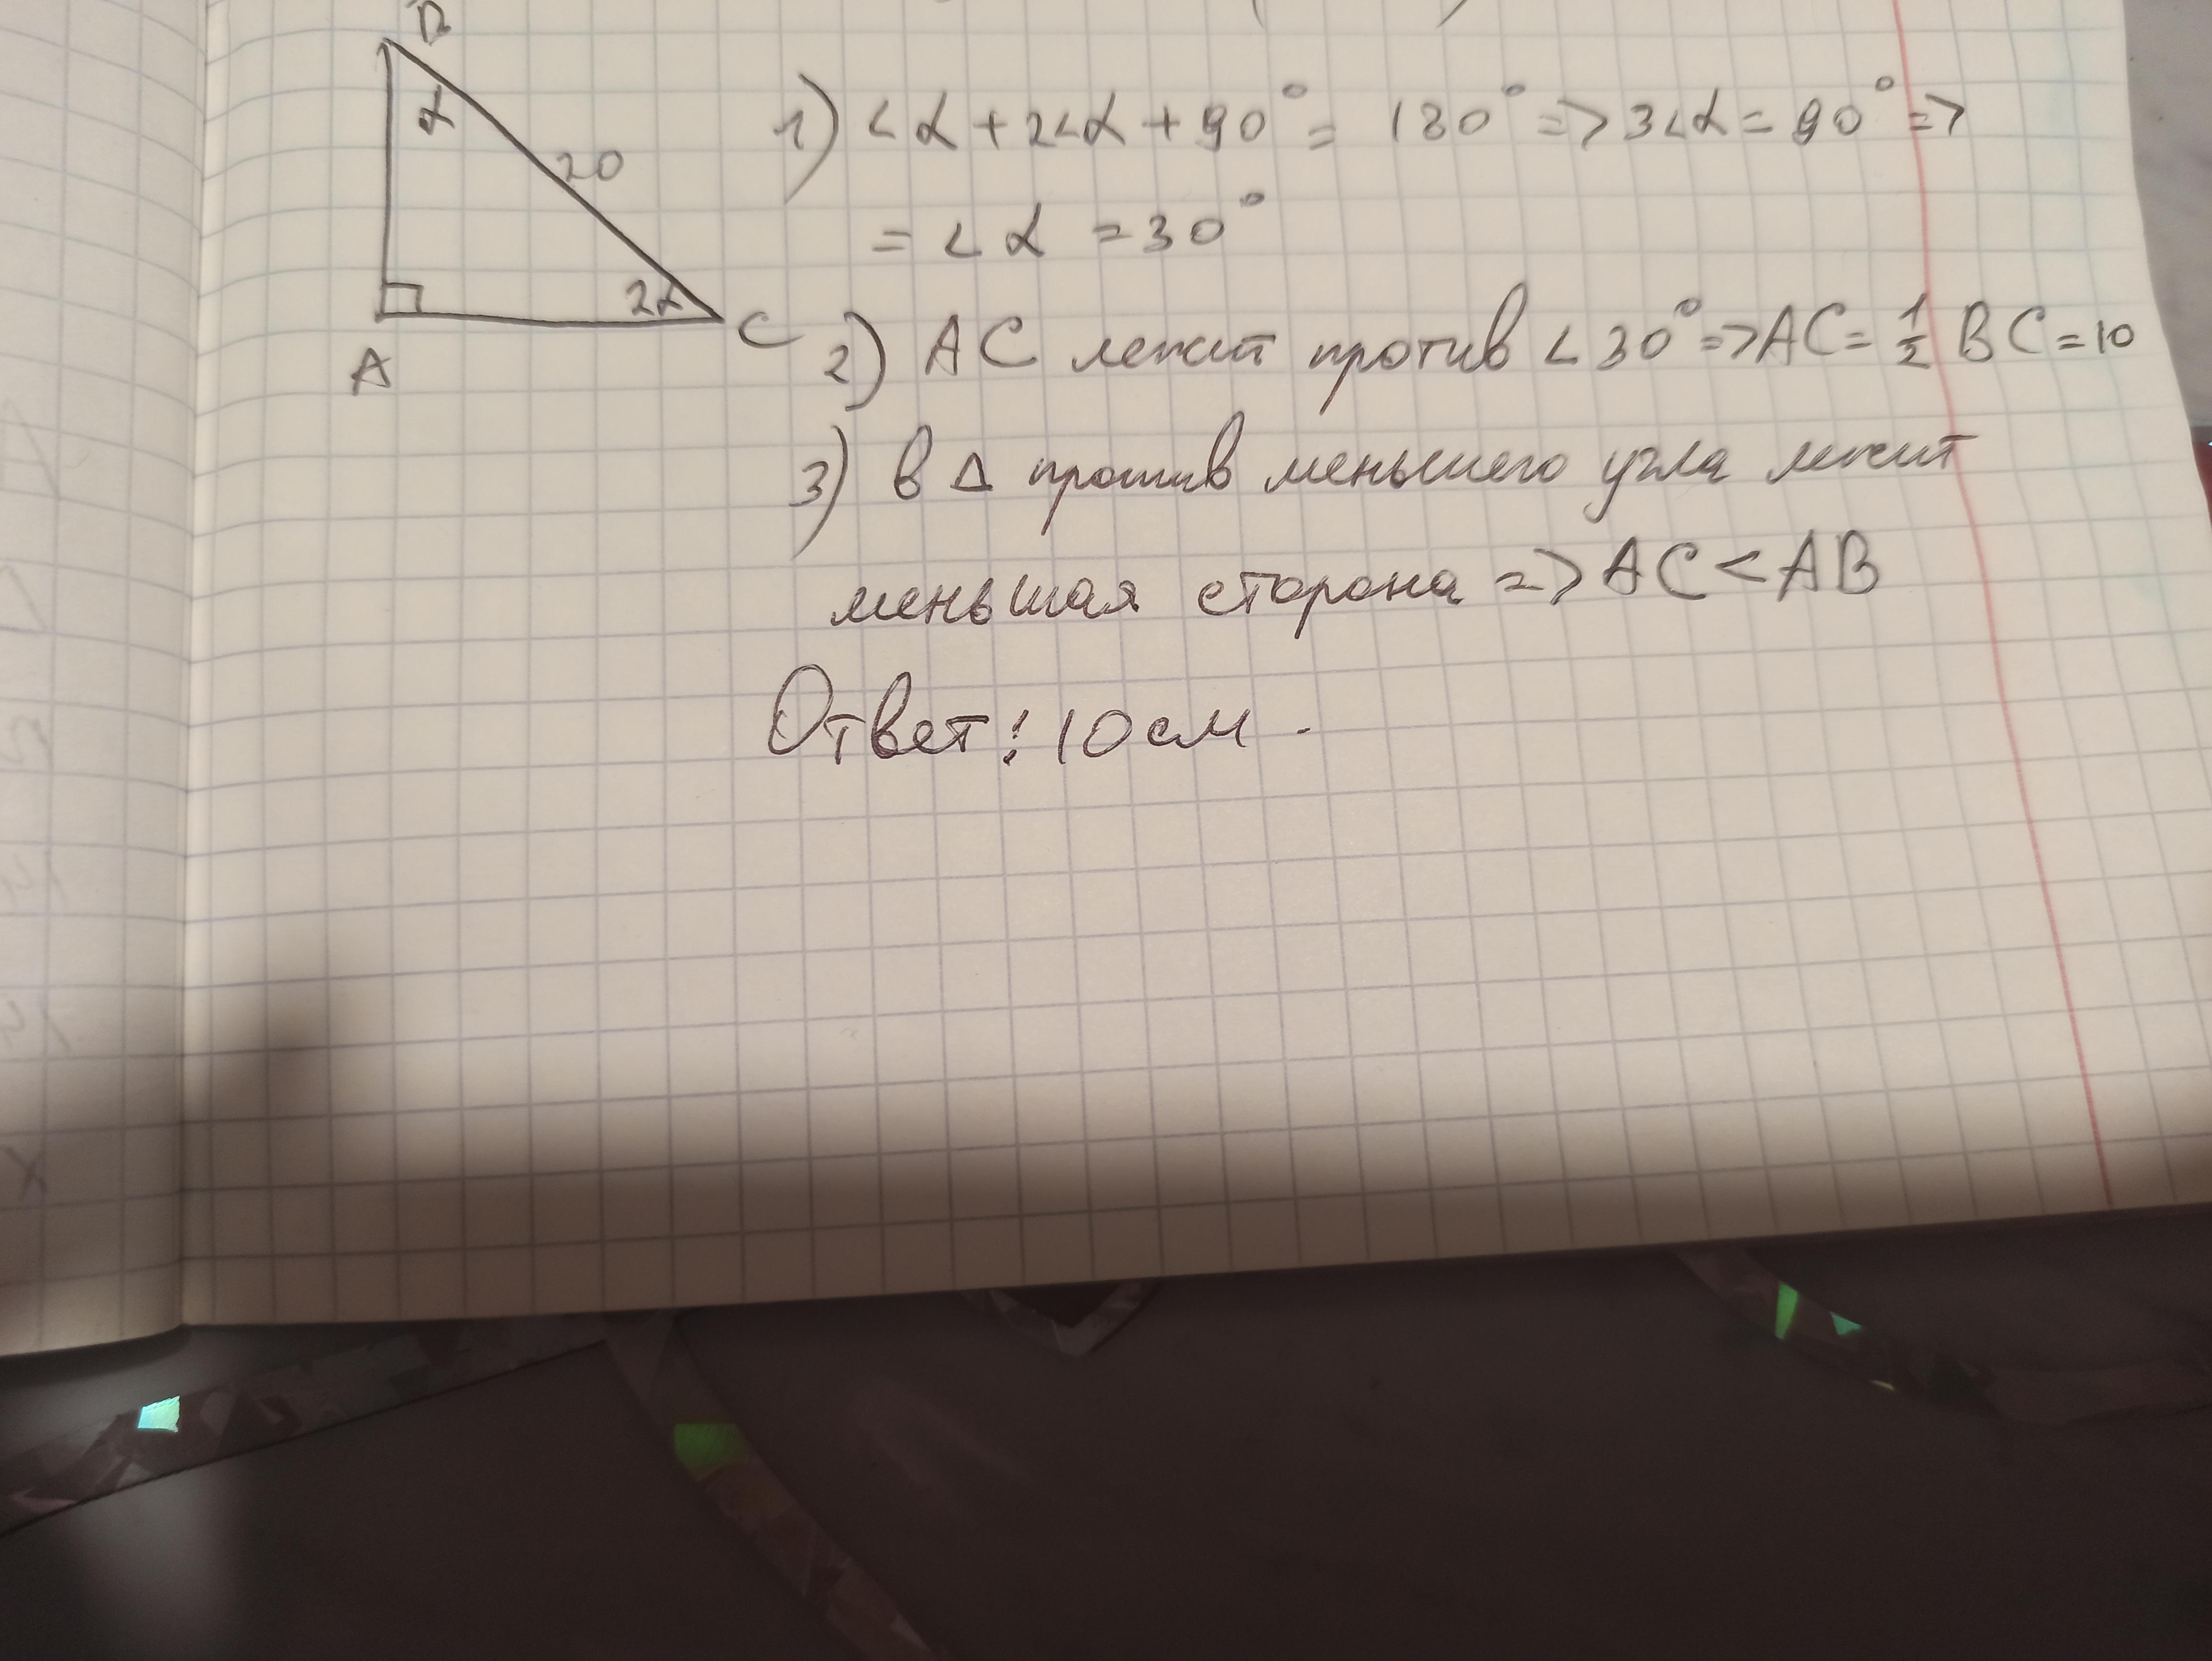 B
α
20
2α
C
A
1) ∠α + 2∠α + 90° = 180° => 3∠α = 90° =>
= ∠α = 30°
2) AC лежит против ∠30° => AC = 1/2 BC = 10
3) в Δ против меньшего угла лежит
меньшая сторона => AC < AB
Ответ: 10 см.